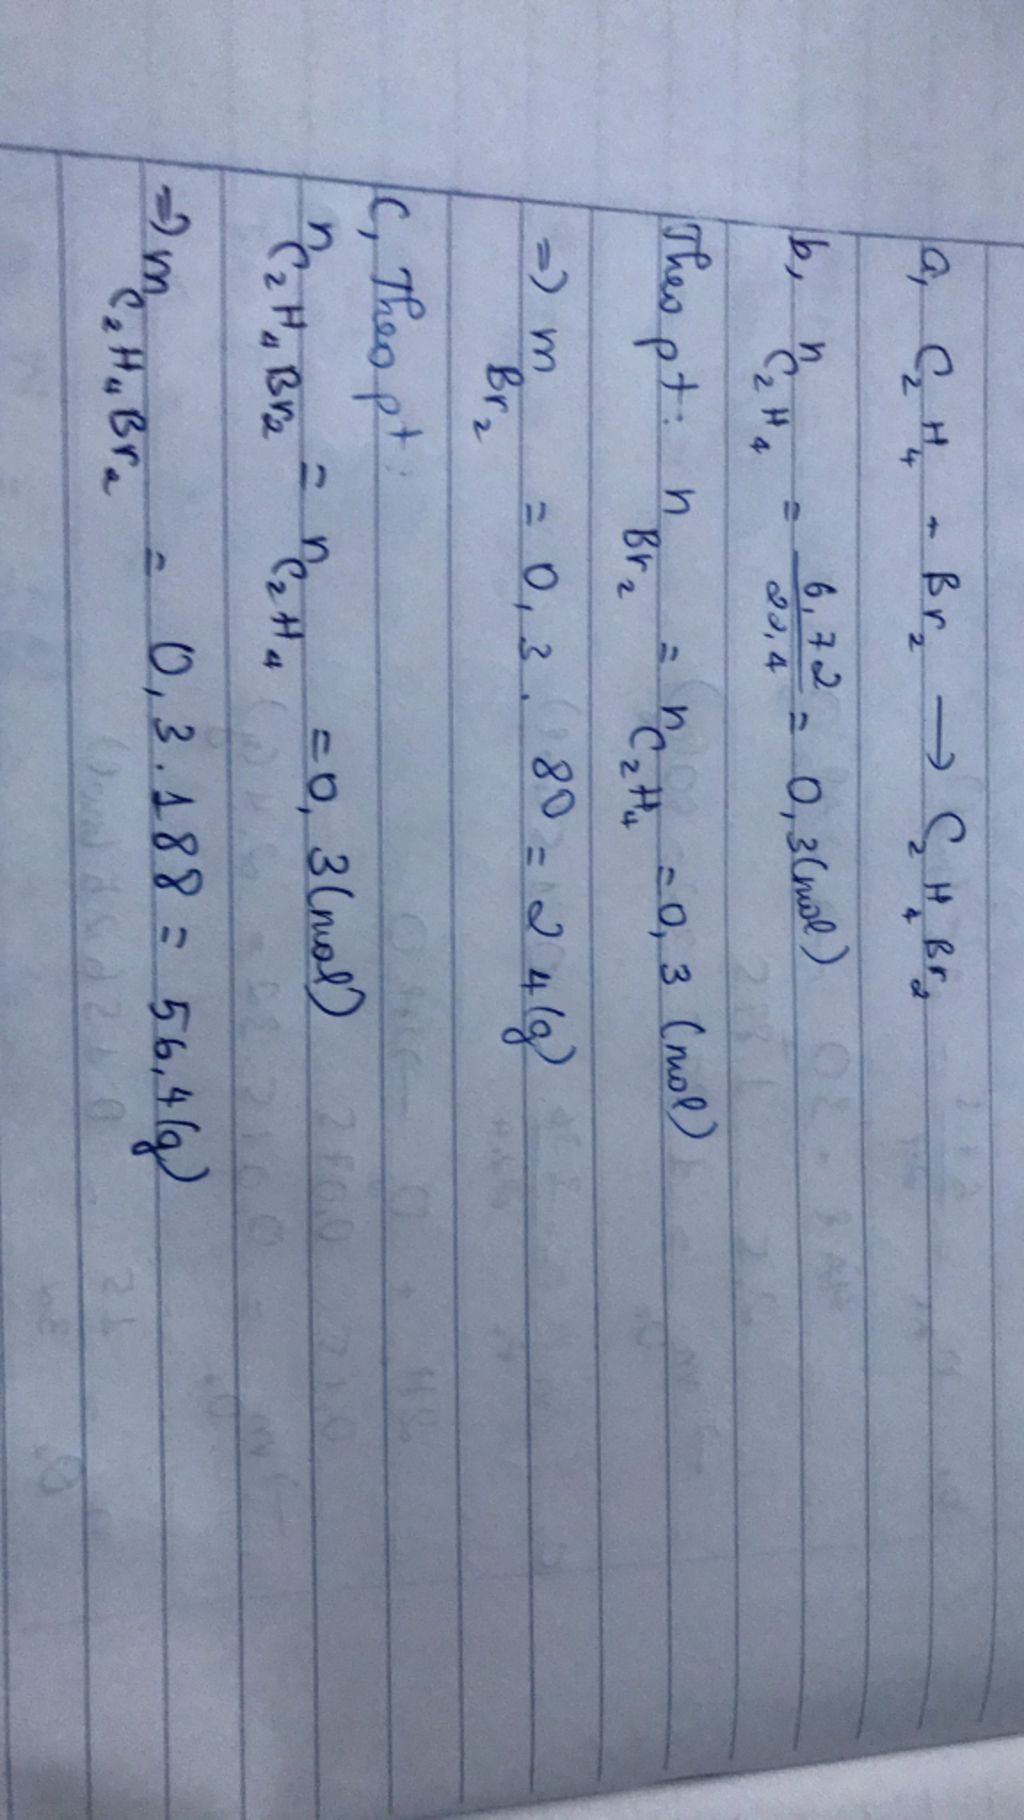 a, C₂H₄ + Br₂ → C₂H₄Br₂
b, n C₂H₄ = 6,72/22,4 = 0,3(mol)
Theo pt: n Br₂ = n C₂H₄ = 0,3 (mol)
=) m Br₂ = 0,3 . 80 = 24(g)
C, Theo pt:
n C₂H₄Br₂ = n C₂H₄ = 0,3(mol)
=) m C₂H₄Br₂ = 0,3.188 = 56,4(g)